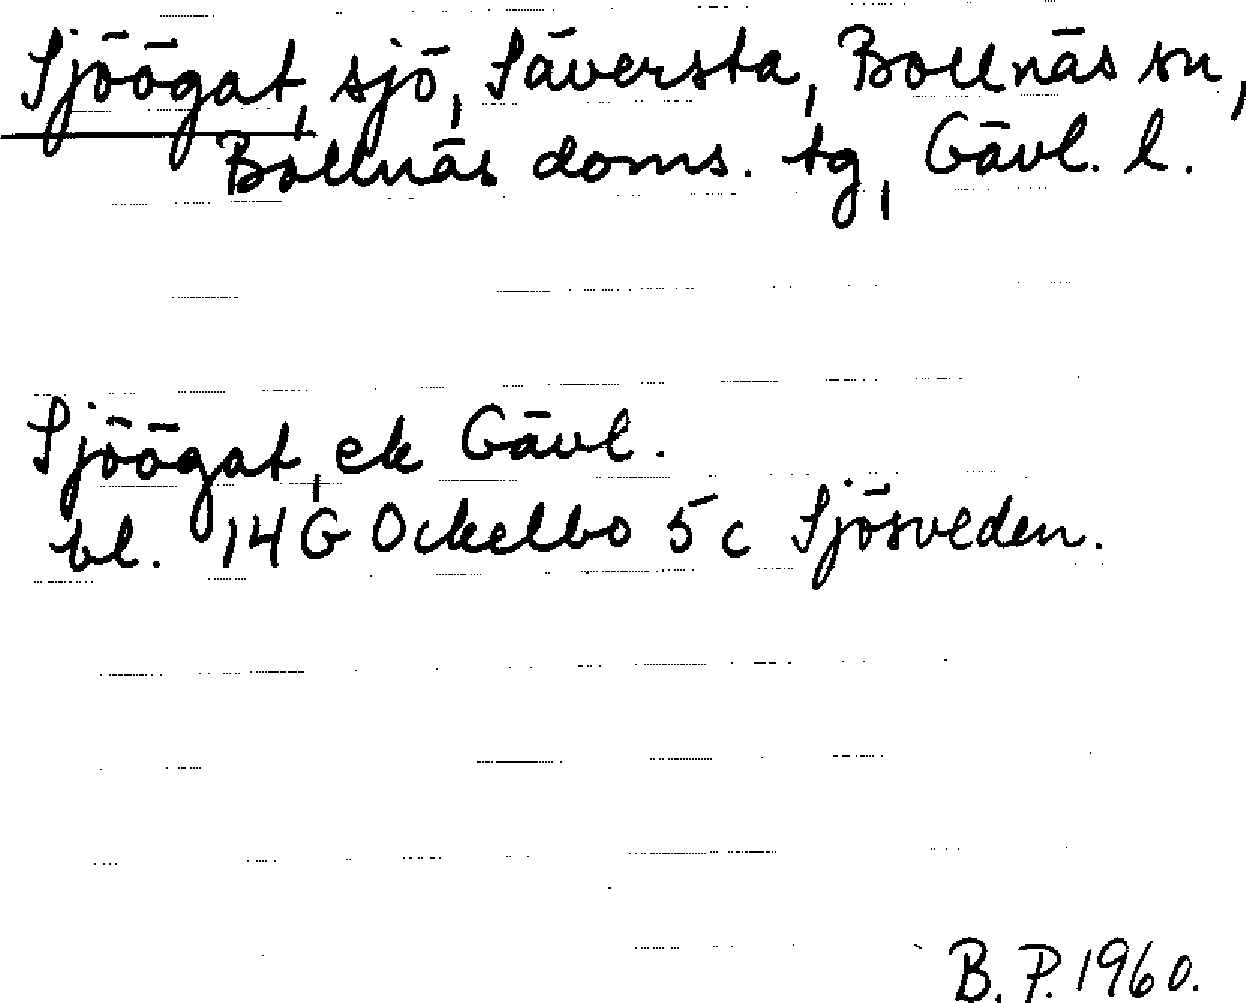 Sjöögat, sjö, Säversta, Bollnäs sn,
Bollnäs doms. tg, Gävl. l.
Sjöögat, ek Gävl.
bl. 14G Ockelbo 5c Sjösveden.
B. P. 1960.